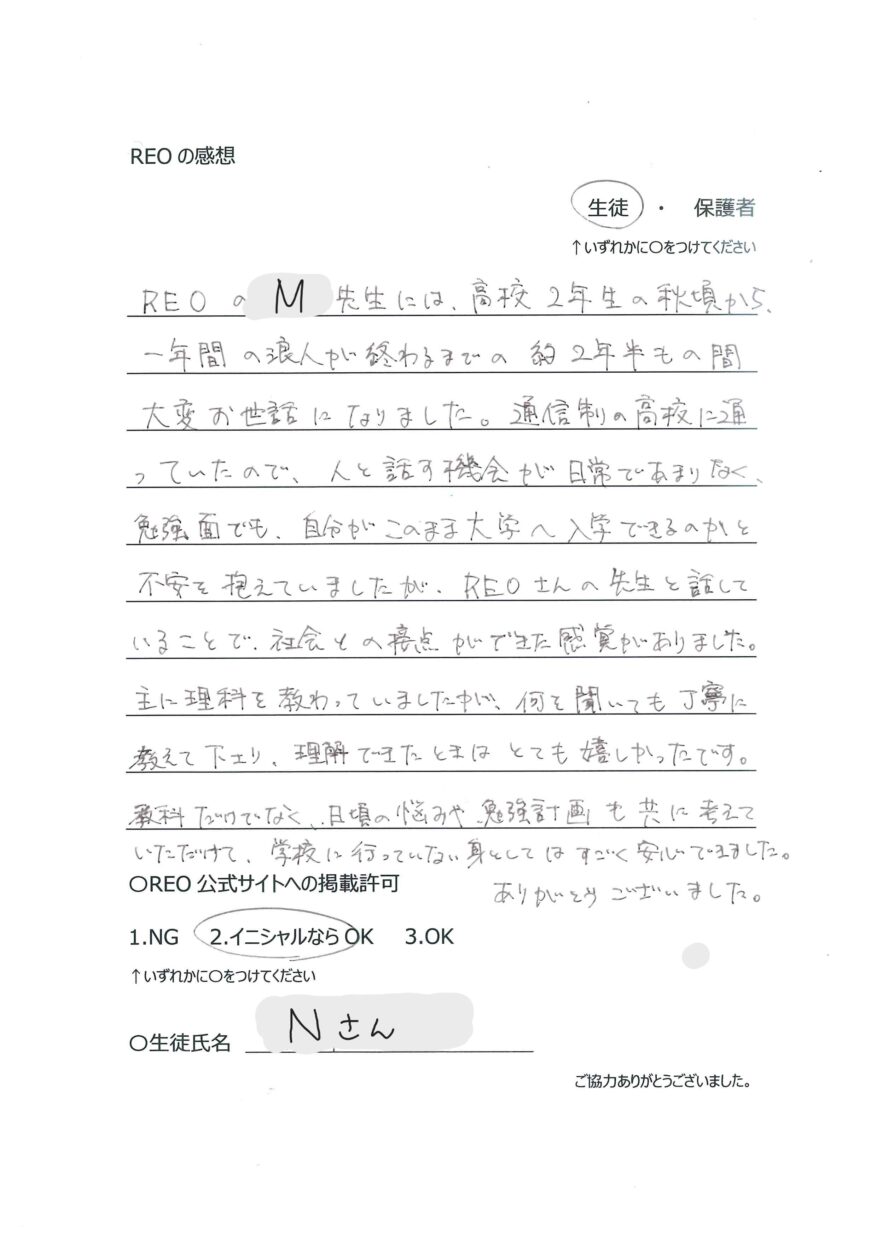 REOの感想
生徒 ・ 保護者
↑いずれかに〇をつけてください
REOの M 先生には、高校2年生の秋頃から、
一年間の浪人が終わるまでの約2年半もの間
大変お世話になりました。通信制の高校に通
っていたので、人と話す機会が日常であまりなく、
勉強面でも、自分がこのまま大学へ入学できるのかと
不安を抱えていましたが、REOさんの先生と話して
いることで、社会との接点ができた感覚がありました。
主に理科を教わっていましたが、何を聞いても丁寧に
教えて下さり、理解できたときはとても嬉しかったです。
教科だけでなく、日頃の悩みや勉強計画も共に考えて
いただけて、学校に行っていない身としてはすごく安心できました。
ありがとうございました。
〇REO公式サイトへの掲載許可
1.NG 2.イニシャルならOK 3.OK
↑いずれかに〇をつけてください
〇生徒氏名 Nさん
ご協力ありがとうございました。